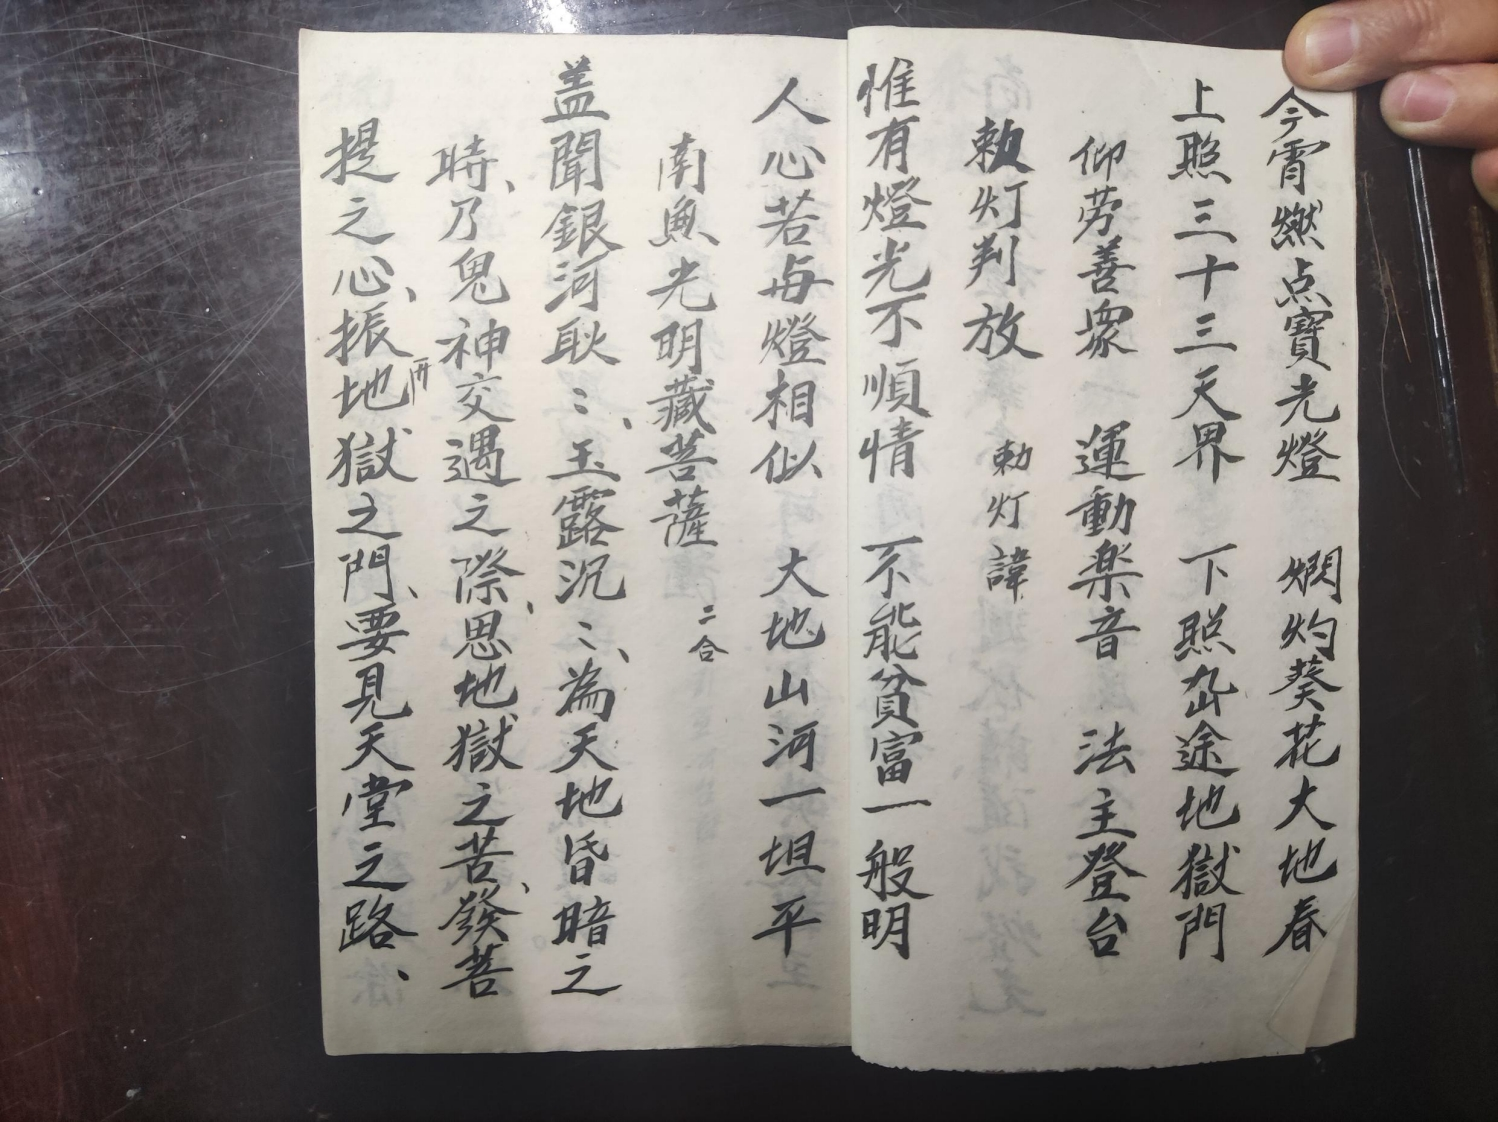 今霄燃点寶光燈 燗灼葵花大地春
上照三十三天界 下照九幽途地獄門
仰劳善衆 運動楽音 法主登台
敕灯判放 勅灯諱
惟有燈光不順情 不能貧富一般明
人心若与燈相似 大地山河一坦平
南無光明藏菩薩 二合
盖聞銀河耿〻、玉露沉〻、為天地昏暗之
時、乃鬼神交遇之際、思地獄之苦、發菩
提之心、振地獄之門、要見天堂之路、
冊